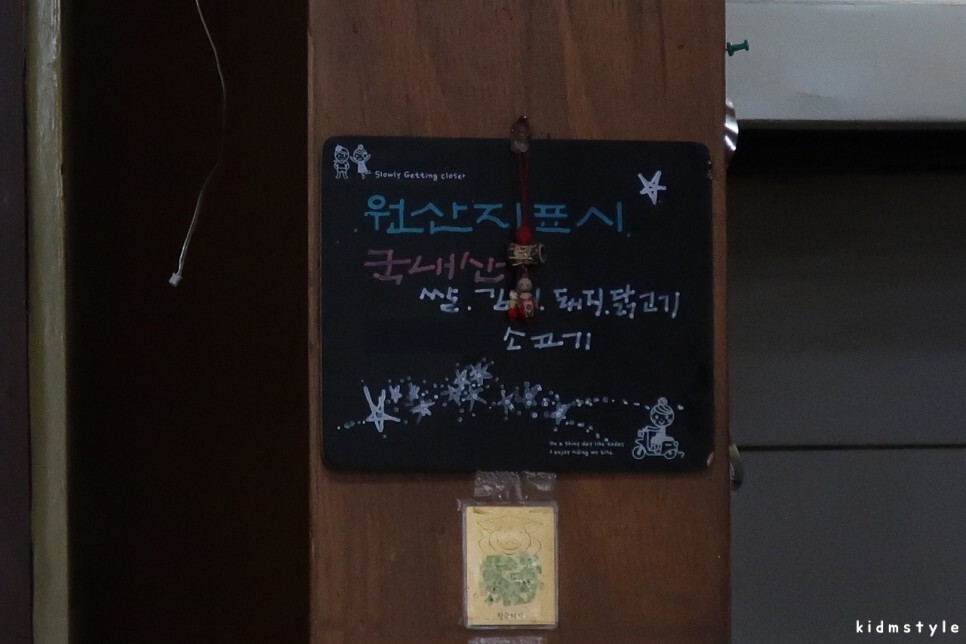 Slowly Getting closer
원산지표시
국내산
쌀. 돼지. 닭고기
소고기
On a shiny day like today
I enjoy riding my bike
kidmstyle